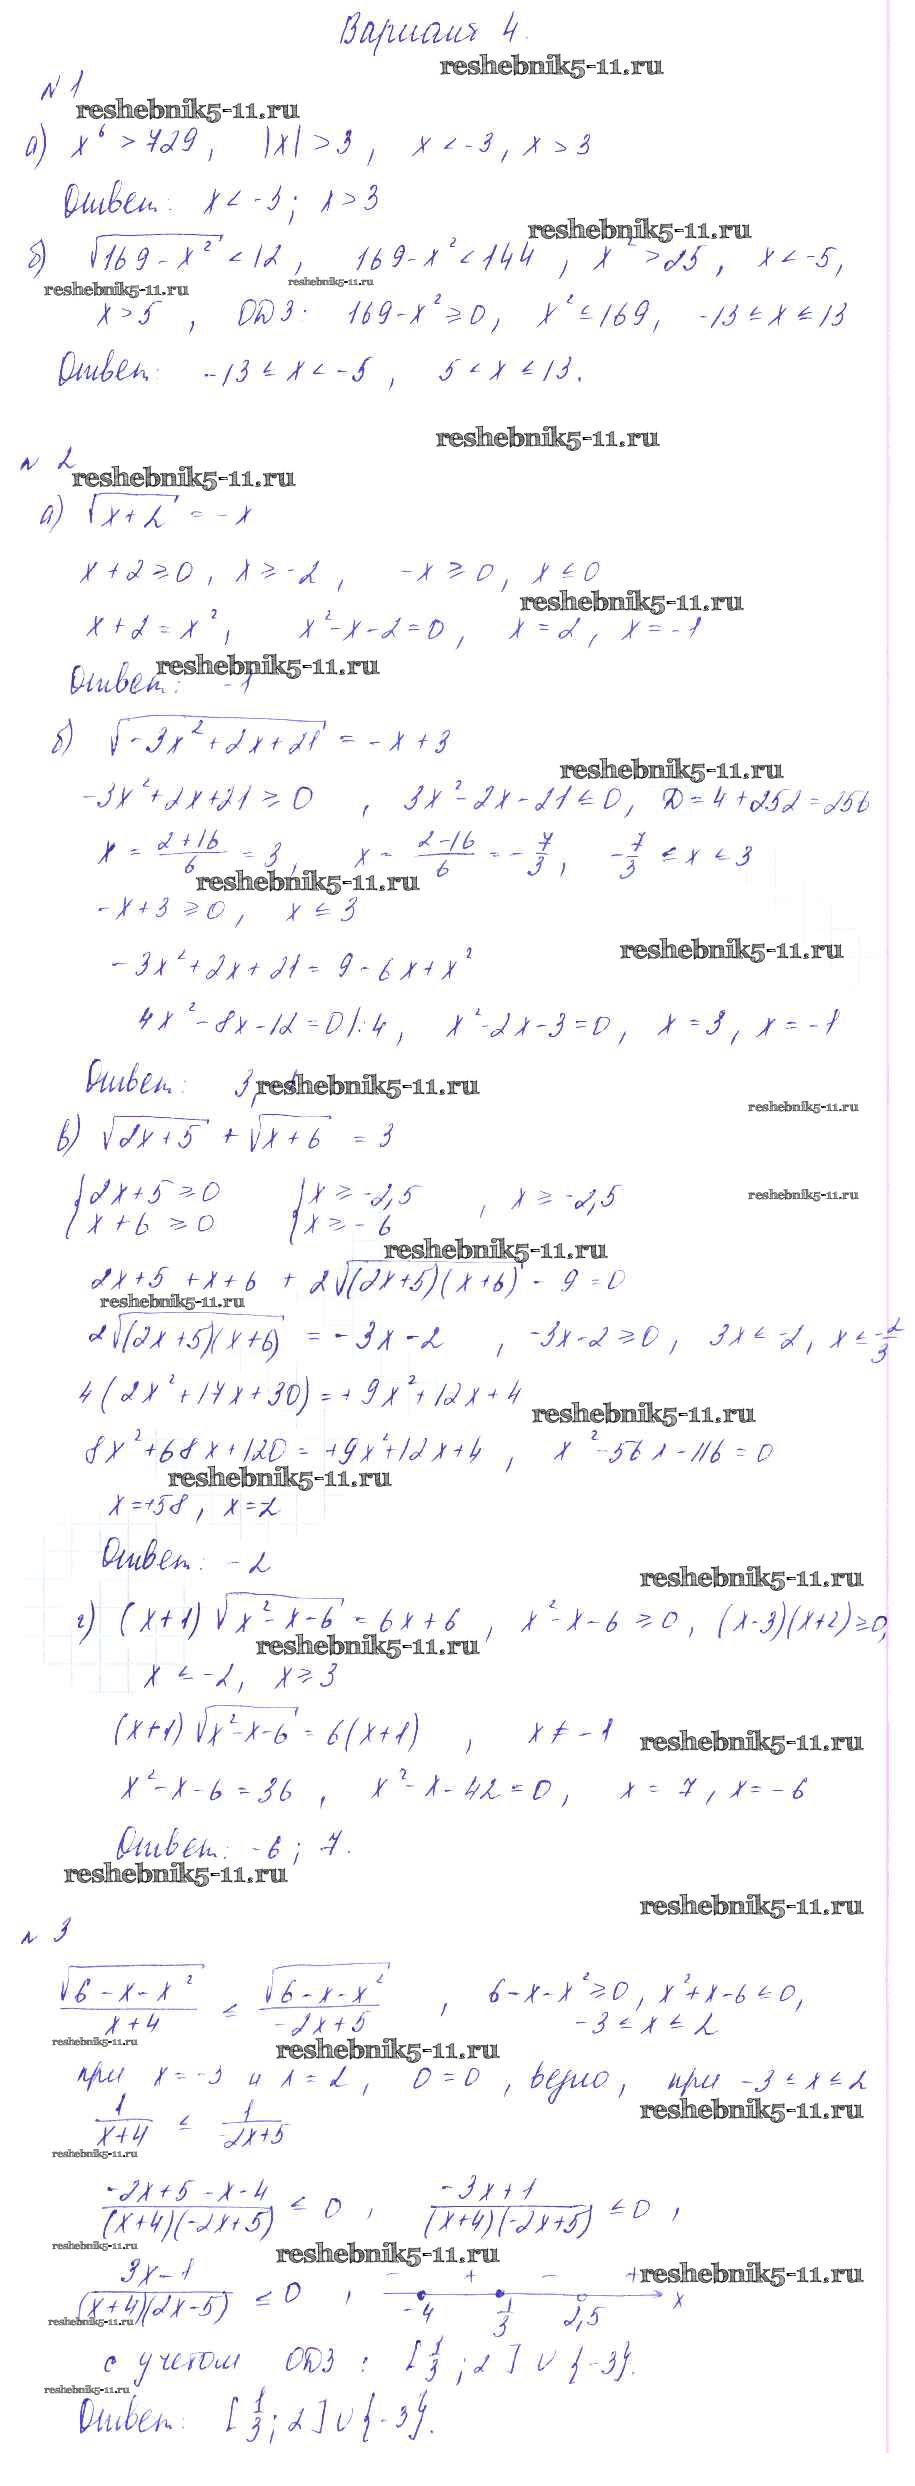 Вариант 4.
reshebnik5-11.ru
№ 1
reshebnik5-11.ru
а) x⁶ > 729, |x| > 3, x < -3, x > 3
Ответ: x < -3; x > 3
reshebnik5-11.ru
б) √(169 - x²) < 12, 169 - x² < 144, x² > 25, x < -5,
reshebnik5-11.ru reshebnik5-11.ru
x > 5, ОДЗ: 169 - x² ≥ 0, x² ≤ 169, -13 ≤ x ≤ 13
Ответ: -13 ≤ x < -5, 5 < x ≤ 13.
reshebnik5-11.ru
№ 2
reshebnik5-11.ru
а) √(x + 2) = -x
x + 2 ≥ 0, x ≥ -2, -x ≥ 0, x ≤ 0
reshebnik5-11.ru
x + 2 = x², x² - x - 2 = 0, x = 2, x = -1
reshebnik5-11.ru
Ответ: -1
б) √(-3x² + 2x + 21) = -x + 3
reshebnik5-11.ru
-3x² + 2x + 21 ≥ 0, 3x² - 2x - 21 ≤ 0, D = 4 + 252 = 256
x = (2+16)/6 = 3, x = (2-16)/6 = -7/3, -7/3 ≤ x ≤ 3
reshebnik5-11.ru
-x + 3 ≥ 0, x ≤ 3
reshebnik5-11.ru
-3x² + 2x + 21 = 9 - 6x + x²
4x² - 8x - 12 = 0 |:4, x² - 2x - 3 = 0, x = 3, x = -1
Ответ: 3,
reshebnik5-11.ru
reshebnik5-11.ru
в) √(2x + 5) + √(x + 6) = 3
{2x + 5 ≥ 0 {x ≥ -2,5, x ≥ -2,5
reshebnik5-11.ru
{x + 6 ≥ 0 {x ≥ -6
reshebnik5-11.ru
2x + 5 + x + 6 + 2√((2x+5)(x+6)) - 9 = 0
reshebnik5-11.ru
2√((2x+5)(x+6)) = -3x - 2, -3x - 2 ≥ 0, 3x ≤ -2, x ≤ -2/3
4(2x² + 17x + 30) = +9x² + 12x + 4
reshebnik5-11.ru
8x² + 68x + 120 = +9x² + 12x + 4, x² - 56x - 116 = 0
reshebnik5-11.ru
x = +58, x = -2
Ответ: -2
reshebnik5-11.ru
г) (x+1)√(x² - x - 6) = 6x + 6, x² - x - 6 ≥ 0, (x-3)(x+2) ≥ 0,
reshebnik5-11.ru
x ≤ -2, x ≥ 3
(x+1)√(x² - x - 6) = 6(x+1), x ≠ -1
reshebnik5-11.ru
x² - x - 6 = 36, x² - x - 42 = 0, x = 7, x = -6
Ответ: -6; 7.
reshebnik5-11.ru
reshebnik5-11.ru
№ 3
√(6 - x - x²)/(x+4) ≤ √(6 - x - x²)/(-2x+5), 6 - x - x² ≥ 0, x² + x - 6 ≤ 0,
-3 ≤ x ≤ 2
reshebnik5-11.ru reshebnik5-11.ru
при x = -3 и x = 2, 0 = 0, верно, при -3 ≤ x ≤ 2
reshebnik5-11.ru
1/(x+4) ≤ 1/(-2x+5)
reshebnik5-11.ru
(-2x + 5 - x - 4)/((x+4)(-2x+5)) ≤ 0, (-3x + 1)/((x+4)(-2x+5)) ≤ 0,
reshebnik5-11.ru reshebnik5-11.ru
reshebnik5-11.ru
(3x - 1)/((x+4)(2x-5)) ≤ 0, - + - +
-4 1/3 2,5 x
reshebnik5-11.ru
с учетом ОДЗ: [1/3; 2] ∪ {-3}.
reshebnik5-11.ru
Ответ: [1/3; 2] ∪ {-3}.